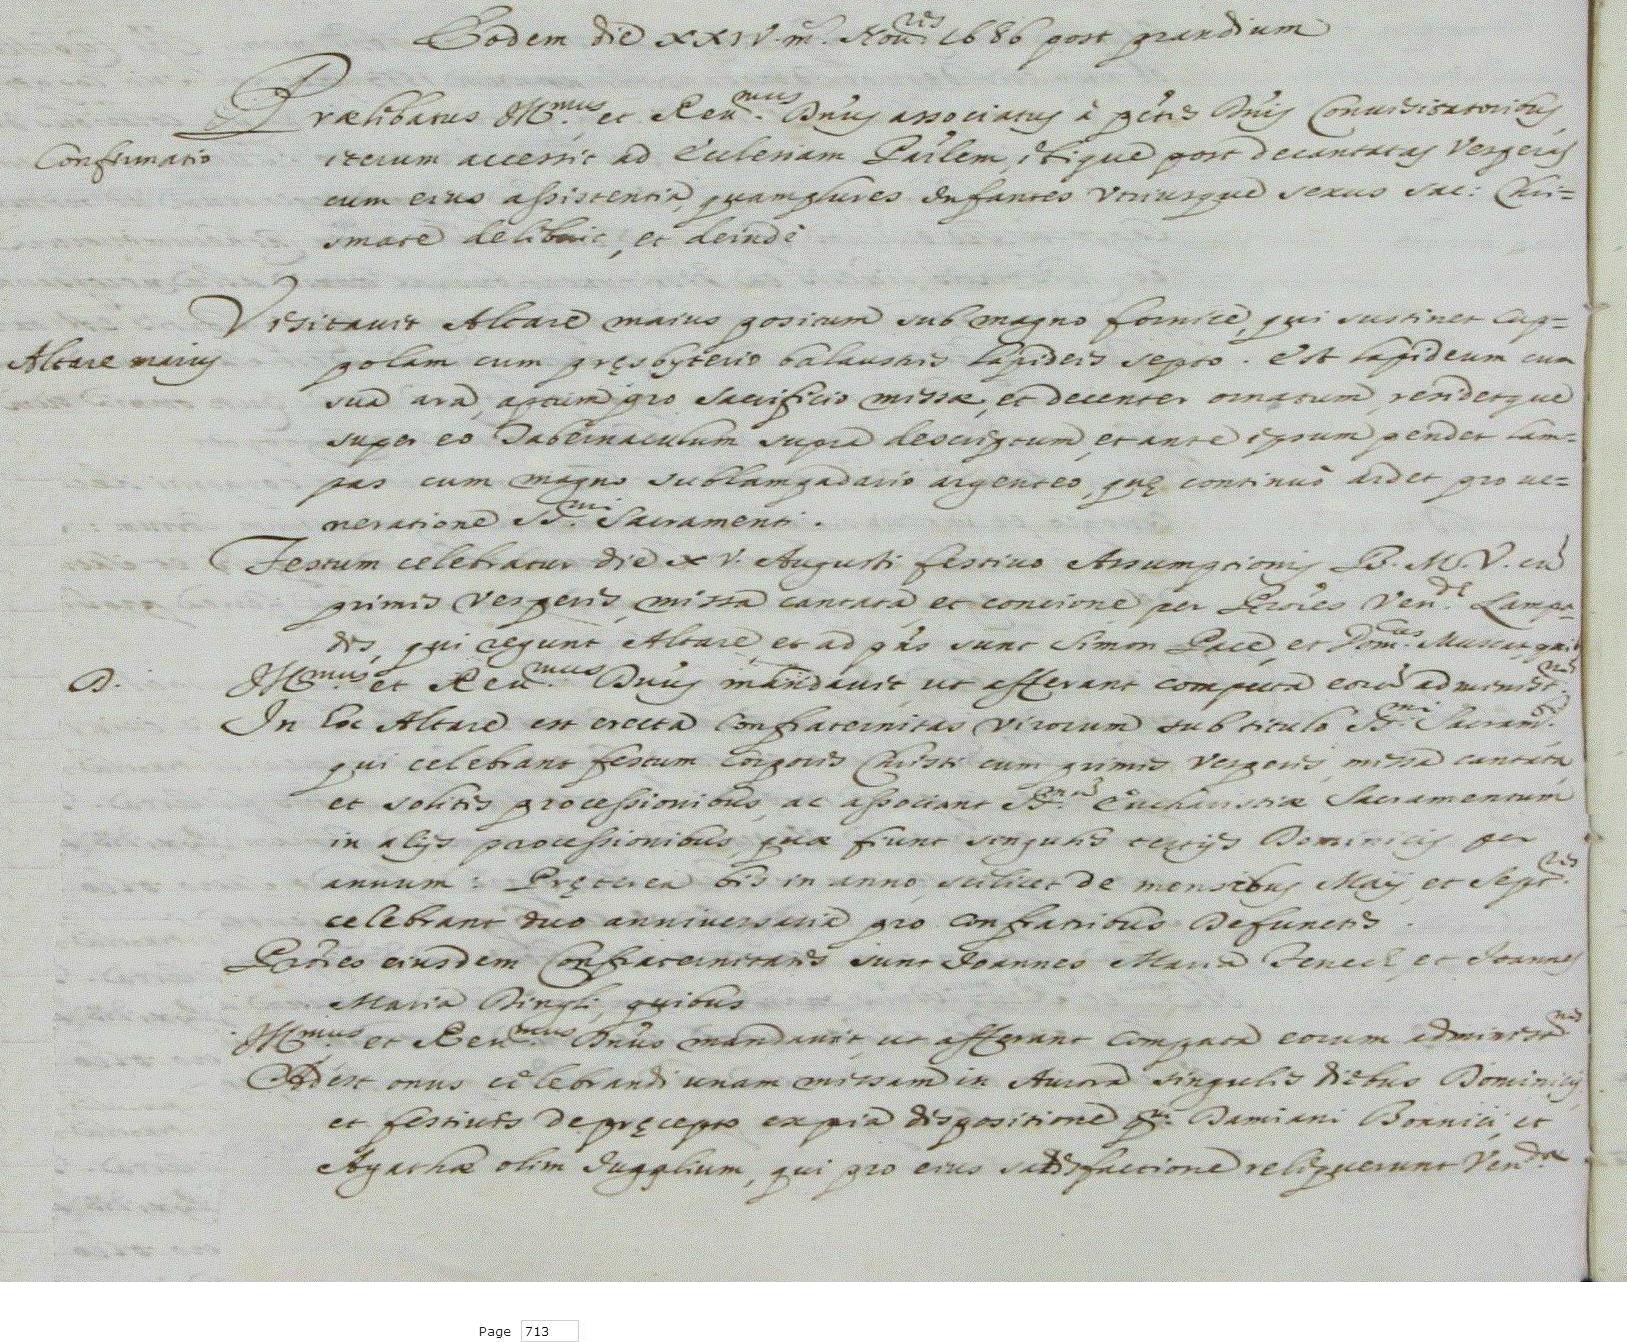 Eodem die XXIV. m.s Nou.ris 1686 post prandium
Prælibatus Ill.mus et Reu.mus Dnus associatus à pctis Dnis Conuisitatoribus,
Confirmatio
iterum accessit ad Ecclesiam Parlem, ibique post decantatas Vesperas
cum eius assistentia, quamplures Infantes Vtriusque sexus sac: Chri=
smate deliniuit, et deinde
Visitauit Altare maius positum sub magno fornice, qui sustinet Cup=
Altare maius
polam cum pręsbyterio balaustris lapideis septo. Est lapideum cum
sua ara, aptum pro Sacrificio missæ, et decenter ornatum, residetque
super eo Tabernaculum supra descriptum, et ante ipsum pendet lam=
pas cum magno sublampadario argenteo, quę continuò ardet pro ue=
neratione SS.mi Sacramenti.
Festum celebratur die XV. Augusti festiuo Assumptionis B. M. V. cu
primis Vesperis, missa cantata et concione per Prores Ven.de Lampa=
dis, qui regunt Altare, et ad pns sunt Simon Pace, et Dom.cus Muscat, quib
D. Ill.mus et Reu.mus Dnus mandauit, ut afferant computa eoru administ.nis
In hoc Altare est erecta Confraternitas Virorum sub titulo SS.mi Sacram.ti
qui celebrant festum Corporis Christi cum primis Vesperis, missa cantata,
et solitis processionibus, ac associant SS.mum Eucharistiæ Sacramentum
in alijs processionibus, quæ fiunt singulis tertijs Dominicis per
annum: Pręterea bis in anno, scilicet de mensibus Maij, et Sept.ris
celebrant duo anniuersaria pro Confratribus Defunctis.
Prores eiusdem Confraternitatis sunt Joannes Maria Fenech, et Joannes
Maria Bingli, quibus
Ill.mus et Reu.mus Dnus mandauit, ut afferant Computa eorum administ.nis
Adest onus celebrandi unam missam in Aurora singulis diebus Dominicis,
et festiuis de pręcepto ex pia dispositione qm. Damiani Bonnici, et
Agathæ olim Jugalium, qui pro eius satisfactione reliquerunt Ven.dæ
Page 713